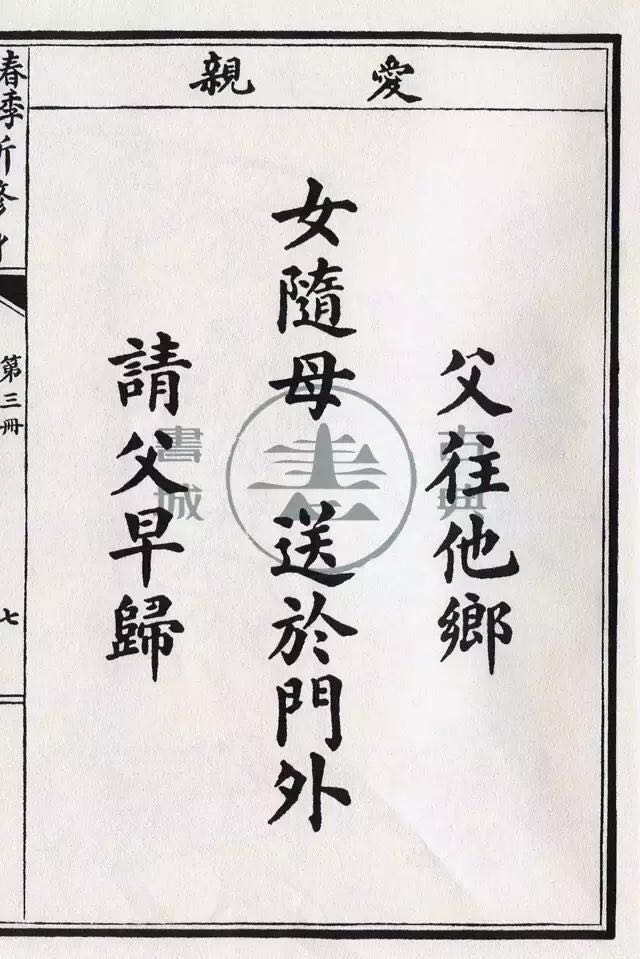 愛親
父往他鄉
女隨母送於門外
請父早歸
春季所修身
第三冊
七
古典
書城